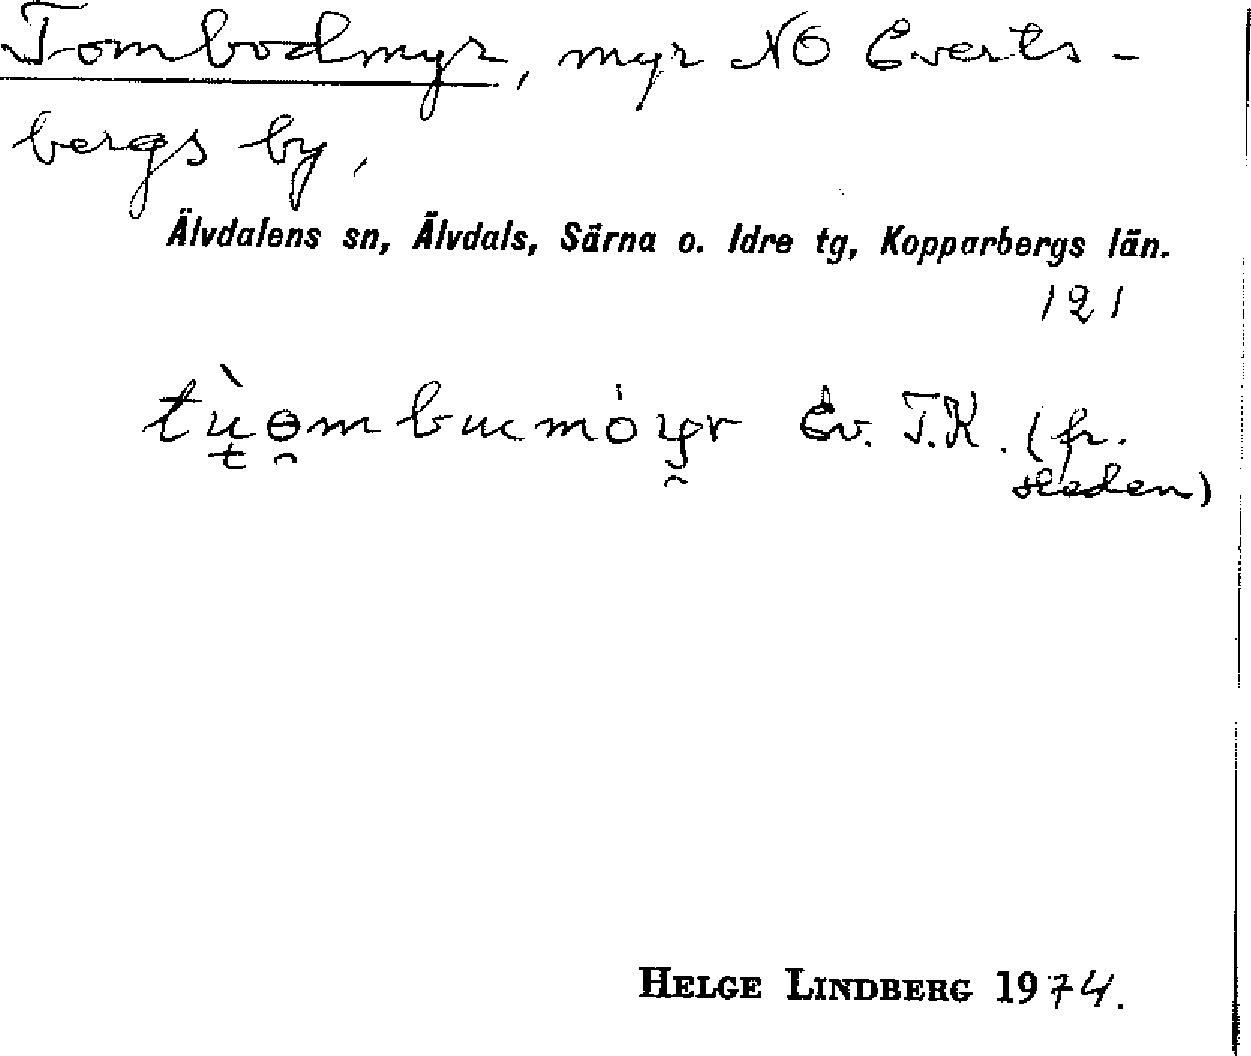 Tombodmyr, myr NO Everts-
bergs by,
Älvdalens sn, Älvdals, Särna o. Idre tg, Kopparbergs län.
121
Ev. T.K. (fr.
Heden)
HELGE LINDBERG 1974.